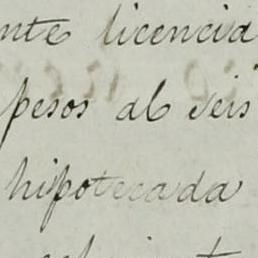 nte licencia
pesos al seis
hipotecada